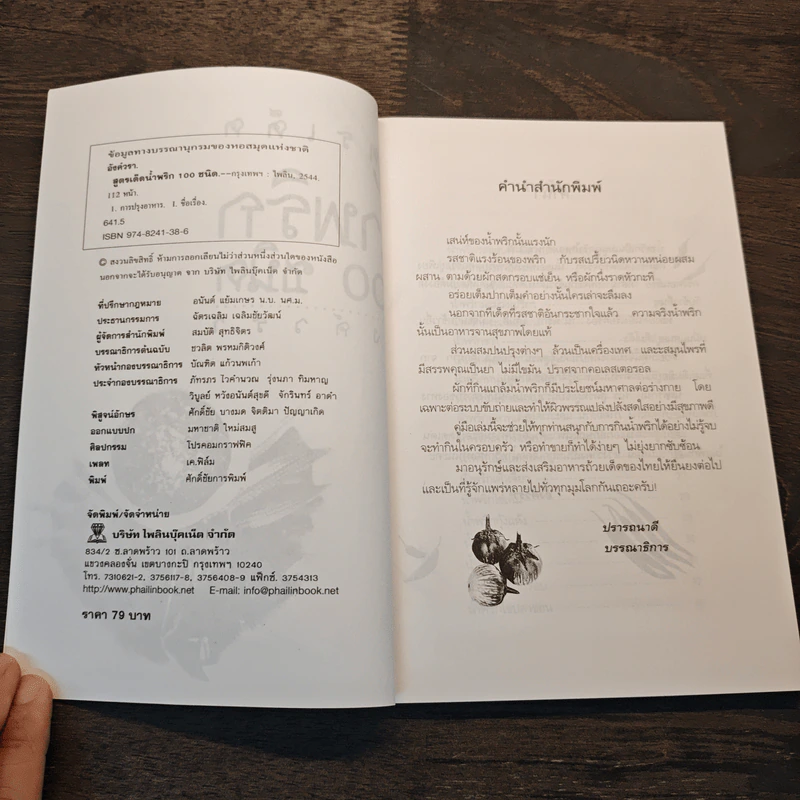 ข้อมูลทางบรรณานุกรมของหอสมุดแห่งชาติ
อังศ์วรา.
สูตรเด็ดน้ำพริก 100 ชนิด.--กรุงเทพฯ : ไพลิน, 2544.
112 หน้า.
1. การปรุงอาหาร. I. ชื่อเรื่อง.
641.5
ISBN 974-8241-38-6
© สงวนลิขสิทธิ์ ห้ามการลอกเลียนไม่ว่าส่วนหนึ่งส่วนใดของหนังสือ
นอกจากจะได้รับอนุญาต จาก บริษัท ไพลินบุ๊คเน็ต จำกัด
ที่ปรึกษากฎหมาย อนันต์ แย้มเกษร น.บ. นศ.ม.
ประธานกรรมการ ฉัตรเฉลิม เฉลิมชัยวัฒน์
ผู้จัดการสำนักพิมพ์ สมบัติ สุทธิจิตร
บรรณาธิการต้นฉบับ ชวลิต พรหมกิติวงศ์
หัวหน้ากองบรรณาธิการ บัณฑิต แก้วนพเก้า
ประจำกองบรรณาธิการ ภัทรภา ไวคำนวณ รุ่งนภา ทิมหาญ
วิบูลย์ หวังอนันต์สุขดี จักรินทร์ อาดำ
พิสูจน์อักษร ศักดิ์ชัย บางมด จิตติมา ปัญญาเกิด
ออกแบบปก มหาชาติ ใหม่สมสู
ศิลปกรรม โปรคอมกราฟฟิค
เพลท เค.ฟิล์ม
พิมพ์ ศักดิ์ชัยการพิมพ์
จัดพิมพ์/จัดจำหน่าย
บริษัท ไพลินบุ๊คเน็ต จำกัด
834/2 ซ.ลาดพร้าว 101 ถ.ลาดพร้าว
แขวงคลองจั่น เขตบางกะปิ กรุงเทพฯ 10240
โทร. 7310621-2, 3756117-8, 3756408-9 แฟ็กซ์. 3754313
http://www.phailinbook.net E-mail: info@phailinbook.net
ราคา 79 บาท
คำนำสำนักพิมพ์
เสน่ห์ของน้ำพริกนั้นแรงนัก
รสชาติแรงร้อนของพริก กับรสเปรี้ยวนิดหวานหน่อยผสม
ผสาน ตามด้วยผักสดกรอบแช่เย็น หรือผักนึ่งราดหัวกะทิ
อร่อยเต็มปากเต็มคำอย่างนั้นใครเล่าจะลืมลง
นอกจากทีเด็ดที่รสชาติอันกระชากใจแล้ว ความจริงน้ำพริก
นั้นเป็นอาหารจานสุขภาพโดยแท้
ส่วนผสมปนปรุงต่างๆ ล้วนเป็นเครื่องเทศ และสมุนไพรที่
มีสรรพคุณเป็นยา ไม่มีไขมัน ปราศจากคอเลสเตอรอล
ผักที่กินแกล้มน้ำพริกก็มีประโยชน์มหาศาลต่อร่างกาย โดย
เฉพาะต่อระบบขับถ่ายและทำให้ผิวพรรณเปล่งปลั่งสดใสอย่างมีสุขภาพดี
คู่มือเล่มนี้จะช่วยให้ทุกท่านสนุกกับการกินน้ำพริกได้อย่างไม่รู้จบ
จะทำกินในครอบครัว หรือทำขายก็ทำได้ง่ายๆ ไม่ยุ่งยากซับซ้อน
มาอนุรักษ์และส่งเสริมอาหารถ้วยเด็ดของไทยให้ยืนยงต่อไป
และเป็นที่รู้จักแพร่หลายไปทั่วทุกมุมโลกกันเถอะครับ!
ปรารถนาดี
บรรณาธิการ